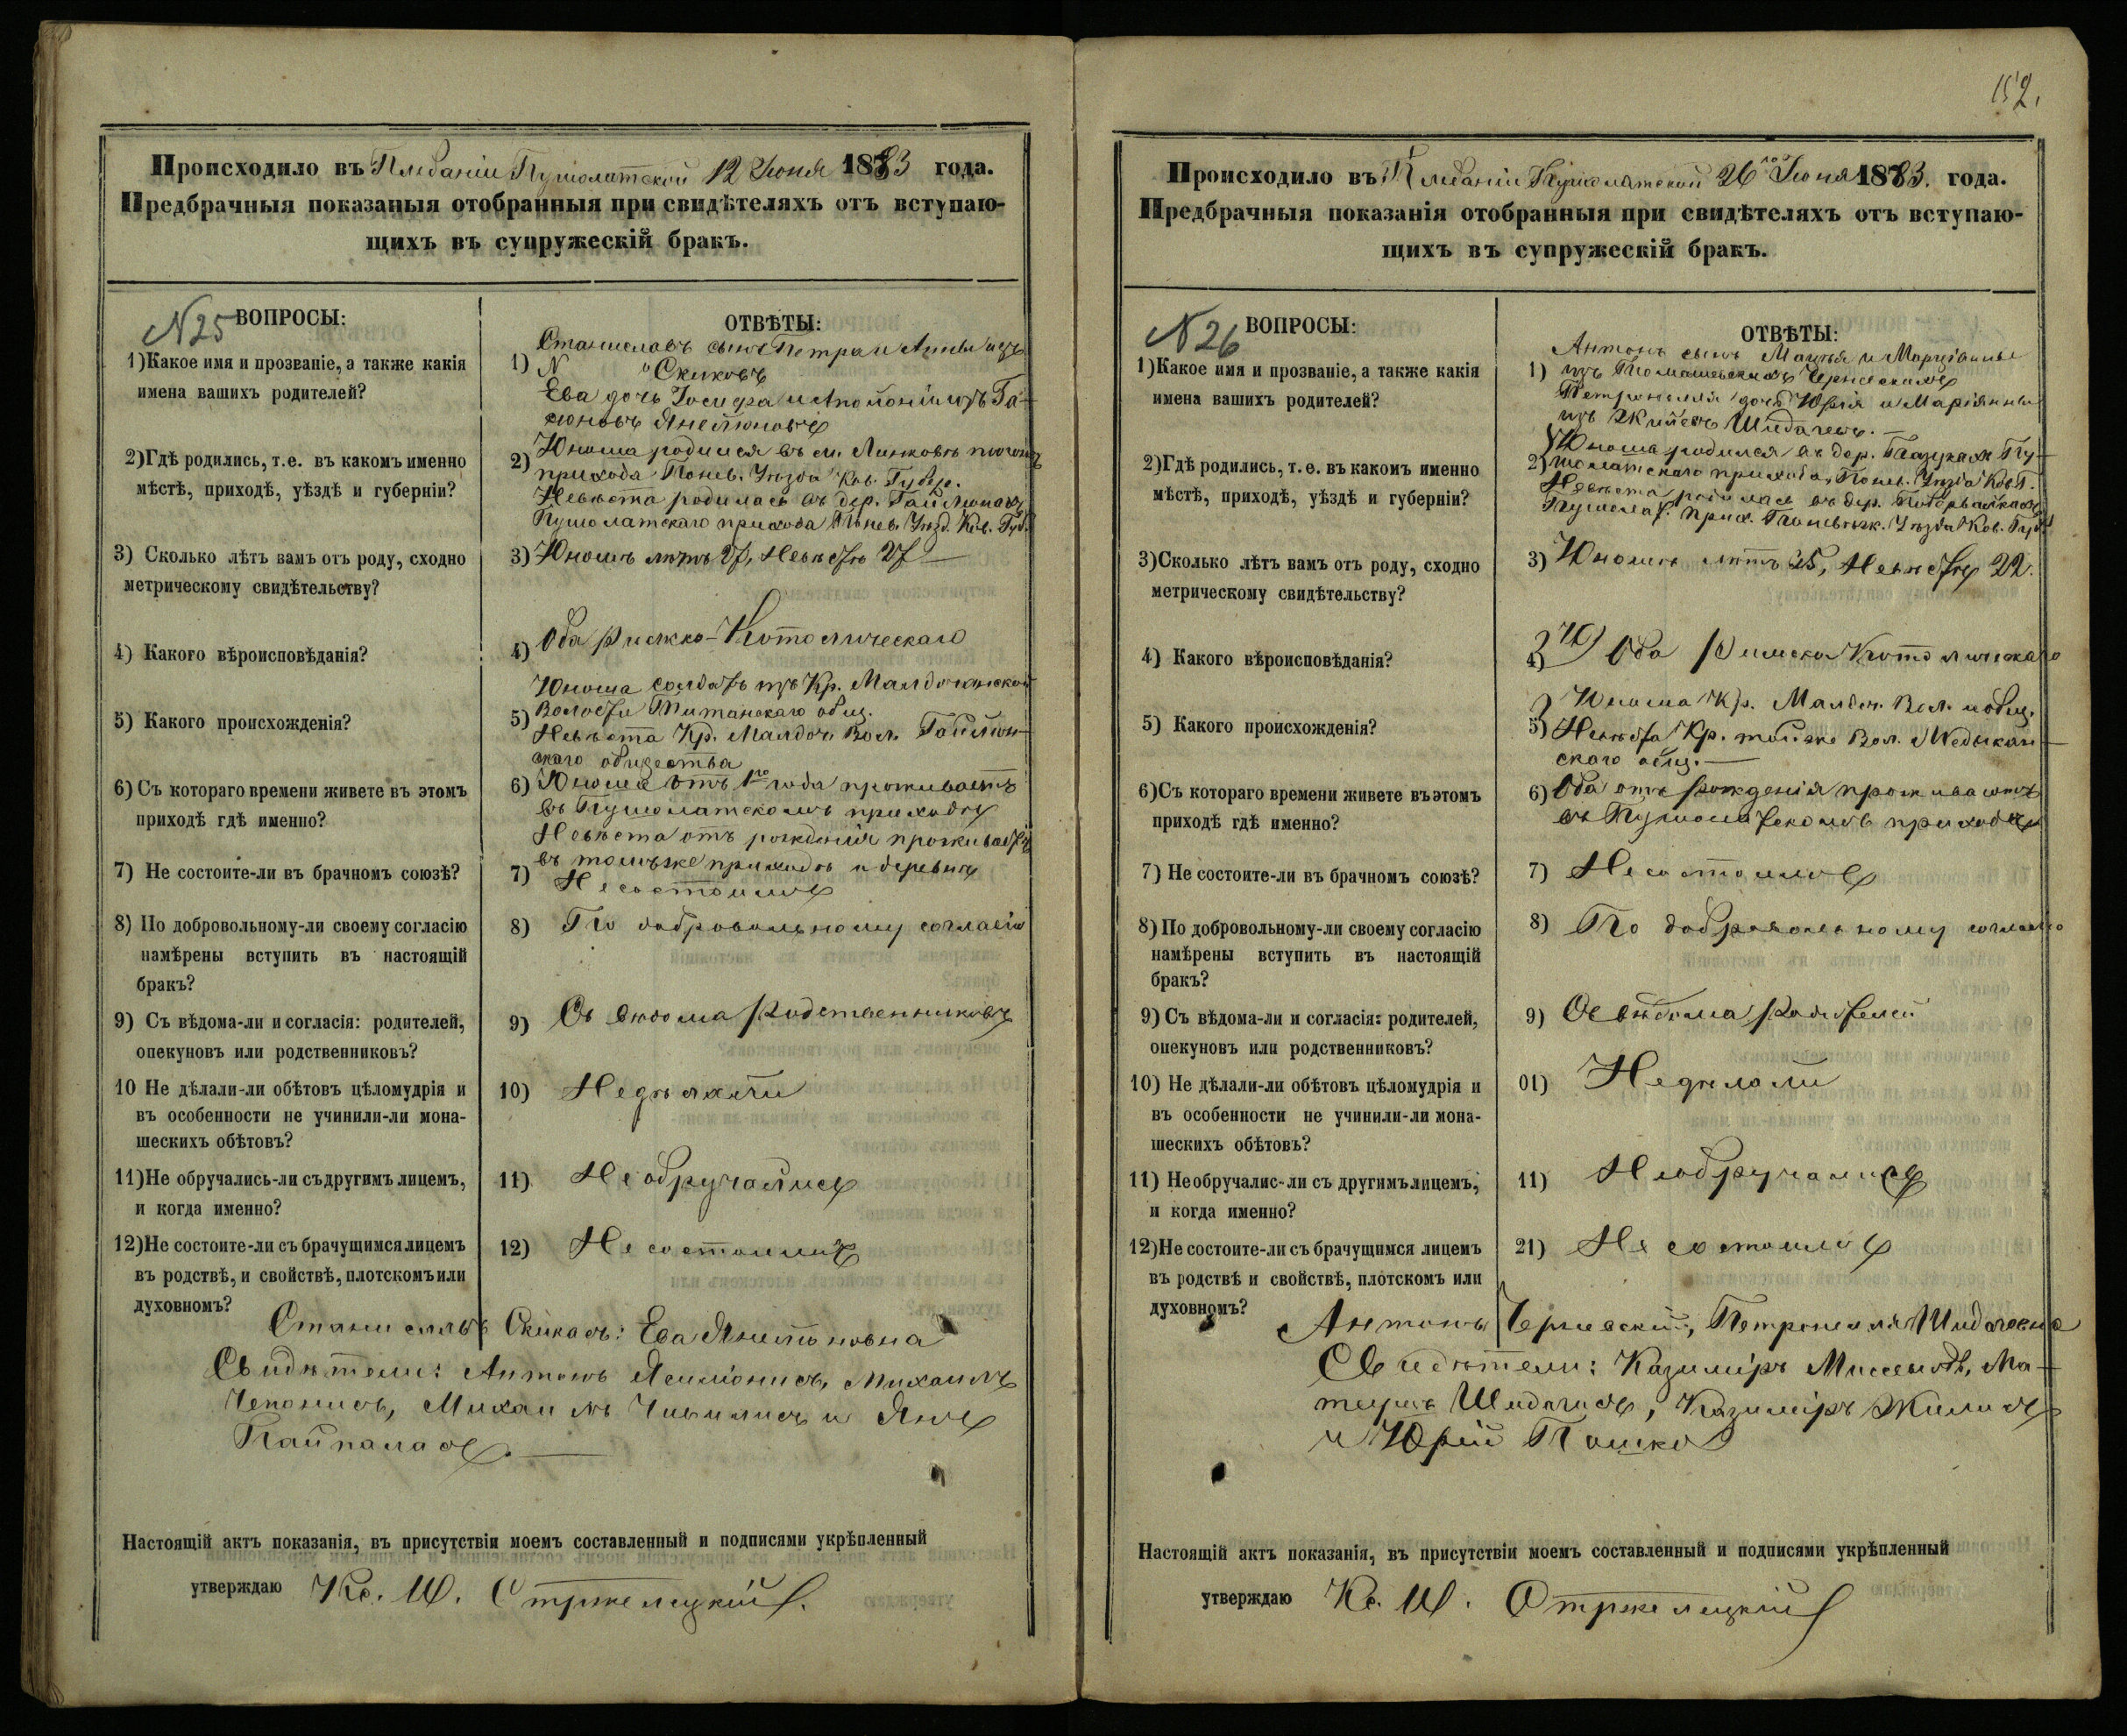 Происходило въ Плебаніи Пушолатской 12 Іюня 1883 года.
Предбрачныя показаныя отобранныя при свидѣтеляхъ отъ вступаю-
щихъ въ супружескій бракъ.
N 25
ВОПРОСЫ:
ОТВѢТЫ:
1) Какое имя и прозваніе, а также какія
имена вашихъ родителей?
1) Станиславъ сынъ Петра и Анны изъ
N " Скиковъ
Ева дочь Іосифа и Аполоніи изъ
2) Гдѣ родились, т.е. въ какомъ именно
мѣстѣ, приходѣ, уѣздѣ и губерніи?
2) Юноша родился въ м. Линковѣ
прихода Понев. Уѣзда Ков. Губер.
Невѣста родилась въ дер.
Пушолатскаго прихода Понев. Уѣзд. Ков. Губ.
3) Сколько лѣтъ вамъ отъ роду, сходно
метрическому свидѣтельству?
3) Юношѣ лѣтъ 27, Невѣстѣ 27
4) Какого вѣроисповѣданія?
4) Оба Римско-Католическаго
5) Какого происхожденія?
5) Юноша солдатъ изъ Кр.
Волости общ.
Невѣста Кр. Малдоч. Вол.
скаго общества
6) Съ котораго времени живете въ этомъ
приходѣ гдѣ именно?
6) Юноша отъ 1го года проживаетъ
въ Пушолатскомъ приходѣ
Невѣста отъ рожденія проживаетъ
въ томъже приходѣ и деревнѣ
7) Не состоите-ли въ брачномъ союзѣ?
7) Несостоимъ
8) По добровольному-ли своему согласію
намѣрены вступить въ настоящій
бракъ?
8) По добровольному согласію
9) Съ вѣдома-ли и согласія: родителей,
опекуновъ или родственниковъ?
9) Съ вѣдома Родственниковъ
10 Не дѣлали-ли обѣтовъ цѣломудрія и
въ особенности не учинили-ли мона-
шескихъ обѣтовъ?
10) Недѣлали
11) Не обручались-ли съ другимъ лицемъ,
и когда именно?
11) Необручались
12) Не состоите-ли съ брачущимся лицемъ
въ родствѣ, и свойствѣ, плотскомъ или
духовномъ?
12) Не состоимъ
Станиславъ Скикасъ: Ева
Свидѣтели: Антонъ Михаилъ
Чепонисъ, Михаилъ и Янъ
Настоящій актъ показанія, въ присутствіи моемъ составленный и подписями укрѣпленный
утверждаю Кс. Ш. Стржелецкій.
152.
Происходило въ Плебаніи Пушолатской 26го Іюня 1883. года.
Предбрачныя показанія отобранныя при свидѣтеляхъ отъ вступаю-
щихъ въ супружескій бракъ.
N 26
ВОПРОСЫ:
ОТВѢТЫ:
1) Какое имя и прозваніе, а также какія
имена вашихъ родителей?
1) Антонъ сынъ и Маріанны
изъ Томашевскихъ Чернескихъ
Петронелля дочь Юрія и Маріянны
изъ
2) Гдѣ родились, т.е. въ какомъ именно
мѣстѣ, приходѣ, уѣздѣ и губерніи?
2) Юноша родился въ дер. Пу-
шолатскаго прихода, Понев. Уѣзда Ков. Г.
Невѣста родилась въ дер.
Пушолат. прих. Поневѣж. Уѣзда Ков. Губ.
3) Сколько лѣтъ вамъ отъ роду, сходно
метрическому свидѣтельству?
3) Юношѣ лѣтъ 25, Невѣстѣ 22.
4) Какого вѣроисповѣданія?
4) Оба Римско Католическаго
5) Какого происхожденія?
5) Юноша Кр. Малдоч. Вол. и общ.
Невѣста Кр. тойже Вол.
скаго общ.
6) Съ котораго времени живете въ этомъ
приходѣ гдѣ именно?
6) Оба отъ рожденія проживаютъ
въ Пушолатскомъ приходѣ
7) Не состоите-ли въ брачномъ союзѣ?
7) Несостоимъ
8) По добровольному-ли своему согласію
намѣрены вступить въ настоящій
бракъ?
8) По добровольному согласію
9) Съ вѣдома-ли и согласія: родителей,
опекуновъ или родственниковъ?
9) Съ вѣдома Родителей
10) Не дѣлали-ли обѣтовъ цѣломудрія и
въ особенности не учинили-ли мона-
шескихъ обѣтовъ?
01) Недѣлали
11) Необручалис-ли съ другимъ лицемъ,
и когда именно?
11) Необручались
12) Не состоите-ли съ брачущимся лицемъ
въ родствѣ и свойствѣ, плотскомъ или
духовномъ?
21) Не состоимъ
Антонъ Чернескій, Петронелля
Свидѣтели: Казимиръ
Казимиръ
и Юрій
Настоящій актъ показанія, въ присутствіи моемъ составленный и подписями укрѣпленный
утверждаю Кс. Ш. Стржелецкій